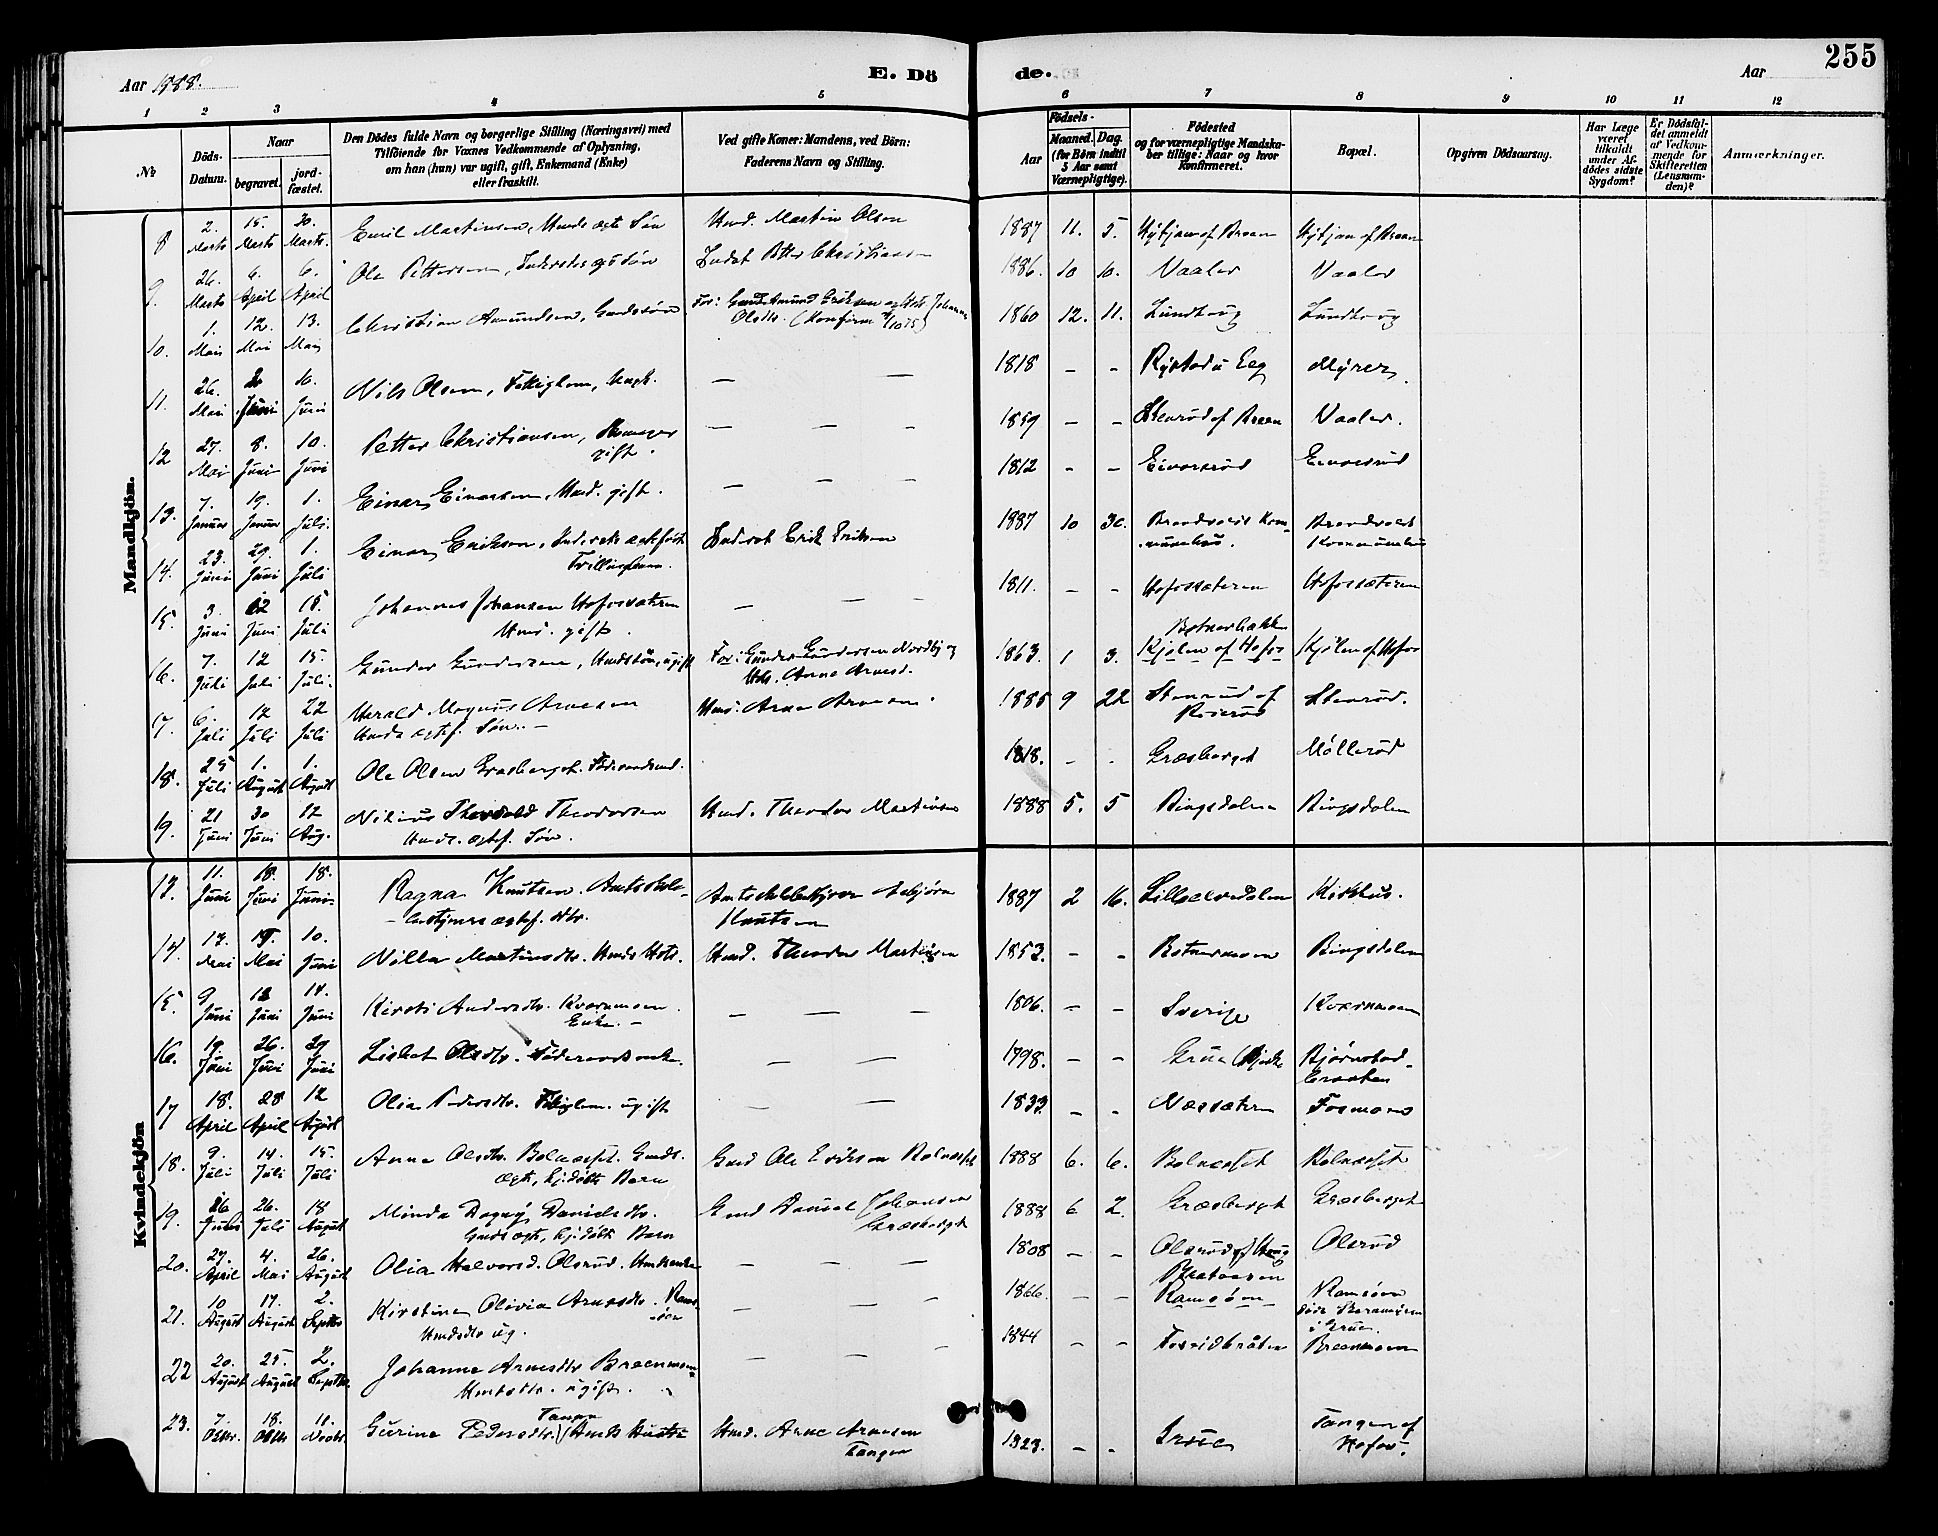 Aar 1888.
E. Dö
de.
Aar
255
1 2 3 4 5 6 7 8 9 10 11 12
№
Döds-
Datum.
Naar
begravet.
jord-
fæstet.
Den Dödes fulde Navn og borgerlige Stilling (Næringsvei) med
Tilföiende for Voxnes Vedkommende af Oplysning,
om han (hun) var ugift, gift, Enkemand (Enke)
eller fraskilt.
Ved gifte Koner: Mandens, ved Börn:
Faderens Navn og Stilling.
Födsels-
Aar
Maaned. Dag.
(for Börn indtil
5 Aar samt
Værnepligtige).
Födested
og for værnepligtige Mandska-
ber tillige: Naar og hvor
konfirmeret.
Bopæl.
Opgiven Dödsaarsag.
Har Læge
været
tilkaldt
under Af-
dödes sidste
Sygdom?
Er Dödsfal-
det anmeldt
af Vedkom-
mende for
Skifteretten
(Lensman-
den)?
Anmærkninger.
Mandkjön.
8 2. Marts 15. Marts 20. Marts. Emil Martinsen, Hmds ægte Søn Hmd. Martin Olsen 1887 11. 5.
9. 26. Marts 6. April 6. April Ole Pettersen, Inderstes Søn Inderst Petter Christiansen 1886. 10 10. Vaaler Vaaler
10. 1. Mai 12. Mai 13. Mai Christian Amundsen, Gaardsøn For: Gmd Amund Eriksen 1860 12. 11. Lundhoug Lundhoug
11. 26. Mai Juni 10. Juni Nils Olsen, Fattiglem, Ungk. — — 1818 - - Myrer
12 27. Mai 8. Juni 10. Juni Petter Christiansen, Skomager
gift. — — - 1859 - - Stenrød af Braan Vaaler.
13. 7. Januar 19. Januar 1. Juli. Einar Einarsen, Hmd. gift. — - - 1812 - - Eivorsrød
14. 23. Juni 29. Juni 1. Juli Einar Eriksen, Inderste ægtefødt
Trillingbarn. Inderst Erik Eriksen 1887 10 30. Brandvold Kom-
munehus. Brandvold
Kommunehus
15. 3. Juni 12 Juni 15. Juli Johannes Johansen Hofossæteren
Hmd. gift. — — - 1811. - - Hofossæteren Hofossæteren
16. 7. Juli 12 Juli 15. Juli. Gunder Gundersen, Hmdssøn, ugift For: Gunder Gundersen Nordby og
Hst. Anne Arnesd. 1863. 1 3. Botnerbakken
Kjølen af Hofos Kjølen af Hofos
17. 6. Juli 12 Juli 22 Juli Harald Magnus Arnesen
Hmds ægtef. Søn. — Hmd. Arne Arnesen. 1885 9 22 Stenrud af Stenrød.
18. 25 Juli 1. August 1. August Ole Olsen Græsberget. 1818. - - Græsberget Møllerød
19. 21 Juni 30 Juni 12 Aug. Nikius Thorvald Theodorsen
Hmds. ægtef. Søn. Hmd. Theodor Martinsen 1888 5. 5 Bingsdalen Bingsdalen
Kvindekjön
13. 11. Juni 18. Juni 18. Juni Ragna Knutsen. Amtsskole-
bestyrers ægtef. Dtr. Amtsskolebestyrer Asbjørn
Knutsen 1887 2 16. Lilleelvedalen Kirkhus.
14. 13. Mai Mai 10. Juni Nilla Martinsdtr. Hmds Hstr. Hmd. Theodor Martinsen 1853. - - Botnermoen Bingsdalen
15. 9 Juni 13 Juni 14. Juni Kirsti Andersdtr. Kværnmoen.
Enke. — — — - 1806. - - Sverige Kværnmoen
16. 19. Juni 26. Juni 29 Juni Lisbet Olsdtr. Føderaadsenke. — — 1798. - - Grue Bjørnstad-
braaten
17 18. April 28 April 12 August Olia Pedersdtr. Fattiglem. ugift — — 1833 - - Næssæteren Fosmoen
18. 9. Juli 14. Juli 15. Juli Anne Olsdtr. Bolnæsset. Gmds.
ægte, hjdøbt Barn Gmd Ole Eriksen Bolnæsset 1888 6. 6. Bolnæsset Bolnæsset
19. 26 Juni 26. Juli 18 August Minda Dagny Danielsdtr.
Gmds ægte, hjdøbt Barn Gmd Daniel Johansen
Græsberget 1888 6 2. Græsberget Græsberget
20. 27. April 4. Mai 26. August Olia Halvorsd. Olsrud. Hmdsenke — — — 1808 - - Olsrød af Haug Olsrød
21. 10 August 17. August 2. Septbr Kirstine Olivia Arnesdtr. Rams-
øen
Hmdsdtr ug. — — - 1866. - - Ramsøen Ramsøen
i Grue.
22 20. August 25. August 2. Septbr. Johanne Arnesdtr Braenmoen
Hmdsdtr. ugift. — — - 1844 - - Torvidbråten Braenmoen
23. 7. Oktbr. 18. Oktbr 11. Novbr. Gurine Pedersdtr. Tangen Hmds Hustru Hmd. Arne Arnesen
Tangen 1823. - - Grue Tangen af
Hofos.